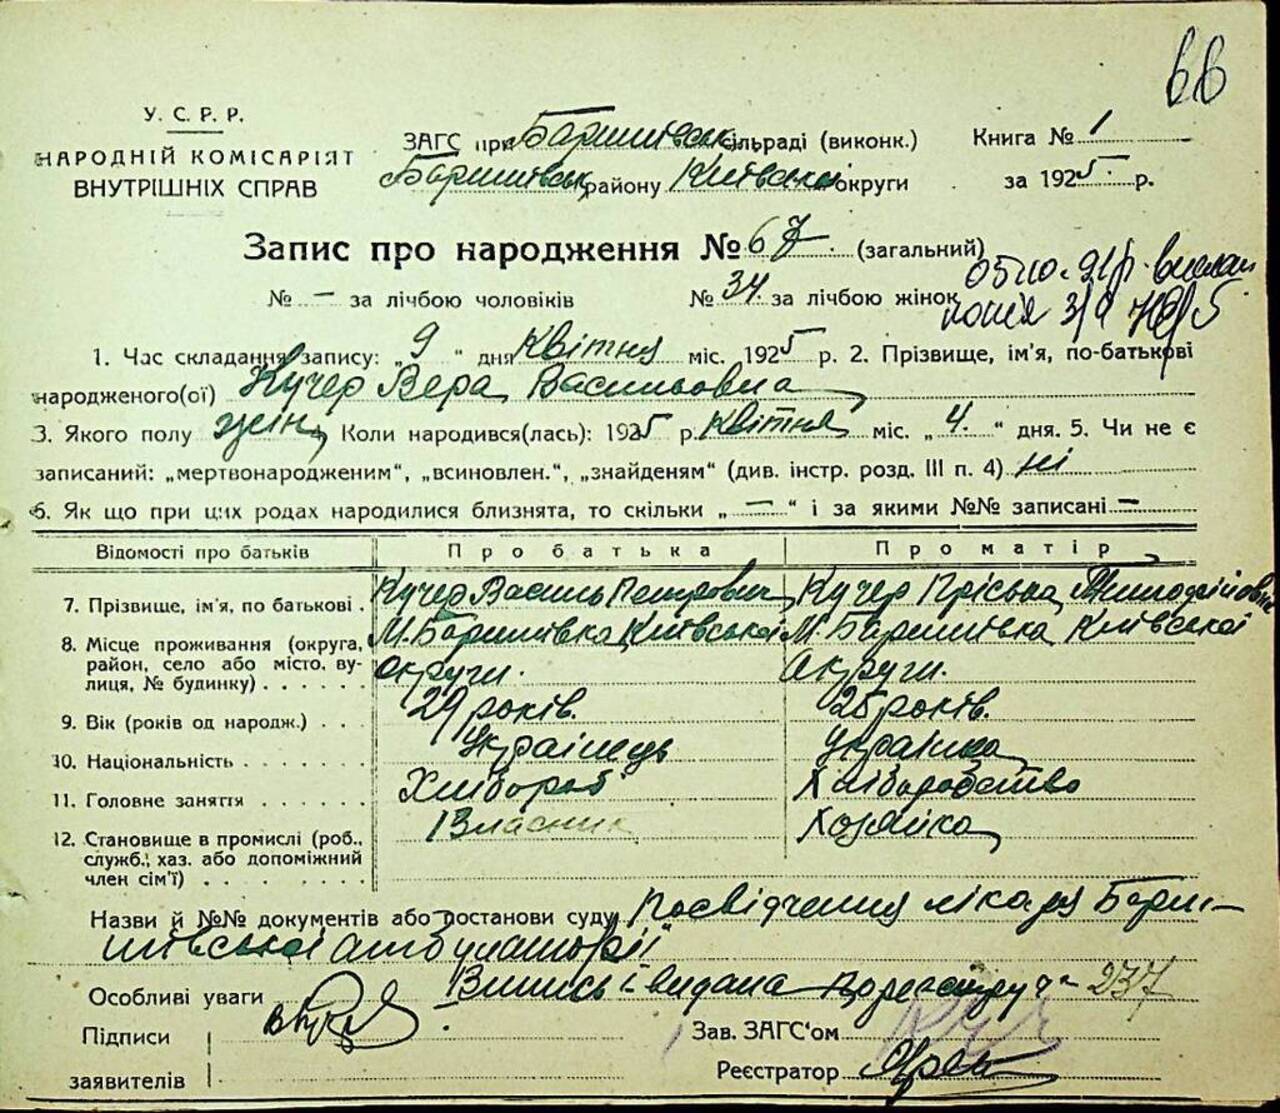 66
У. С. Р. Р.
НАРОДНІЙ КОМІСАРІЯТ
ВНУТРІШНІХ СПРАВ
ЗАГС при Баришівськ. сільраді (виконк.)
Баришівськ. району Київської округи
Книга № 1
за 1925 р.
Запис про народження № 67. (загальний)
№ — за лічбою чоловіків № 34. за лічбою жінок
копія
1. Час складання запису: „ 9 " дня Квітня міс. 1925 р. 2. Прізвище, ім'я, по-батькові
народженого(ої) Кучер Вера Васильовна
3. Якого полу жін. Коли народився(лась): 1925 р. Квітня міс. „ 4. " дня. 5. Чи не є
записаний: „мертвонародженим", „всиновлен.", „знайденям" (див. інстр. розд. III п. 4) ні
6. Як що при цих родах народилися близнята, то скільки „ — " і за якими №№ записані —
Відомості про батьків Про батька Про матір
7. Прізвище, ім'я, по батькові . Кучер Василь Петрович Кучер Пріська
8. Місце проживання (округа, М. Баришівка Київської М. Баришівка Київської
район, село або місто, ву- округи. округи.
лиця, № будинку) . . . . . .
9. Вік (років од народж.) . . . 29 років. 25 років.
10. Національність . . . . . . . Українець Українка
11. Головне заняття . . . . . . Хлібороб Хліборобство
12. Становище в промислі (роб., Власник Хозяйка
служб., хаз. або допоміжний
член сім'ї) . . . . . . . . .
Назви й №№ документів або постанови суду Посвідчення лікаря Бари-
шівської амбулаторії
Особливі уваги Випись видана по реєстру № 237
Підписи
заявителів
Зав. ЗАГС'ом
Реєстратор